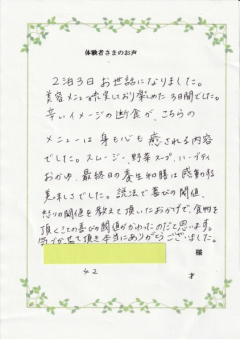 体験者さまのお声
2泊3日お世話になりました。
美容メニュー充実しており楽しめた3日間でした。
辛いイメージの断食が、こちらの
メニューは身も心も癒される内容
でした。スムージー、野菜スープ、ハーブティ
おかゆ、最終日の養生御膳は感動的
美味しさでした。説法で喜びの閾値、
怒りの閾値を教えて頂いたおかげで、食物を
頂くことの喜びの閾値がかわったのだと思います。
気づかせて頂き本当にありがとうございました。
様
42 才